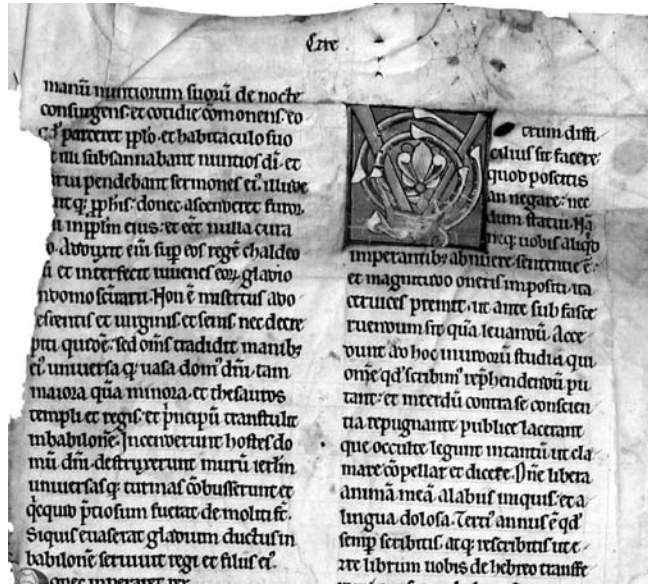 manū nuntiorum suoꝝ de nocte
consurgens· et cotidie cōmonens· eo
parceret pp̄lo· et habitaculo suo
subsannabant nuntios dī· et
pendebant sermones eī·
pp̄his· donec ascenderet furor
in pp̄lm ejus· et eēt nulla cura
Adduxit eīn sup eos regē chaldeo
et interfecit iuuenes eoꝝ gladio
ndomo Non ē misertus ado
escentis et uirginis· et senis nec decre
piti quidē· sed om̄s tradidit manibꝫ
eī· uniuersa qꝫ uasa domꝰ dn̄i· tam
maiora qua minora· et thesauros
templi et regis· et p̄ncipū transtulit
inbabilonē· Incenderunt hostes do
mū dn̄i· destruxerunt murū ierlm̄
uniuersas qꝫ turmas cōbusserunt et
p̄tiosum fuerat demoliti sт̄·
Siquis euaserat gladium ductus in
babilonē seruiuit regi et filiis eī·
Donec imperaret rex
V
erum diffi
cilius sit facere
quod poscitis
an negare· nec
dum statui· Nā
neqꝫ uobis aliqd
imperantibꝫ abnuere sententie ē·
et magnitudo oneris impositi· ita
ceruices premit· ut ante sub fasce
ruendum sit quā leuandū· Acce
dunt ad hoc inuidoꝝ studia qui
om̄e qd̄ scribimꝰ rep̄hendendū pu
tant· et interdū contra se conscien
tia repugnante publice lacerant
que occulte legunt intantū ut cla
mare cōpellar et dicere· Dn̄e libera
animā meā a labiis iniquis· et a
lingua dolosa· Terciꝰ annus ē qd̄
semp scribitis atqꝫ rescribitis ut e
librum uobis de hebreo transfe